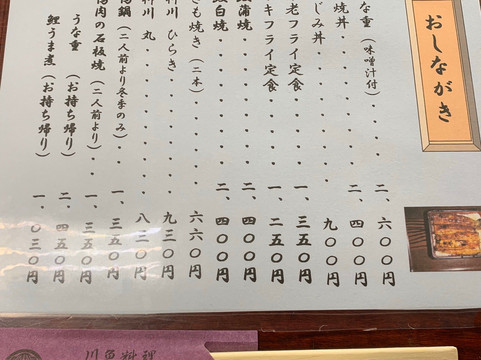 おしながき
な重（味噌汁付）・・・二、六〇〇円
焼丼・・・・・二、四〇〇円
じみ丼・・・・・九〇〇円
老フライ定食・・・・一、三五〇円
キフライ定食・・・・一、二五〇円
蒲焼・・・・・二、四〇〇円
白焼・・・・・二、四〇〇円
も焼き（二本）・・・・六六〇円
川 ひらき・・・・九三〇円
川 丸・・・・・八二〇円
鍋（二人前より冬季のみ）・・一、三五〇円
肉の石板焼（二人前より）・・一、三五〇円
うな重（お持ち帰り）・・二、四五〇円
鯉うま煮（お持ち帰り）・・一、〇三〇円
川魚料理